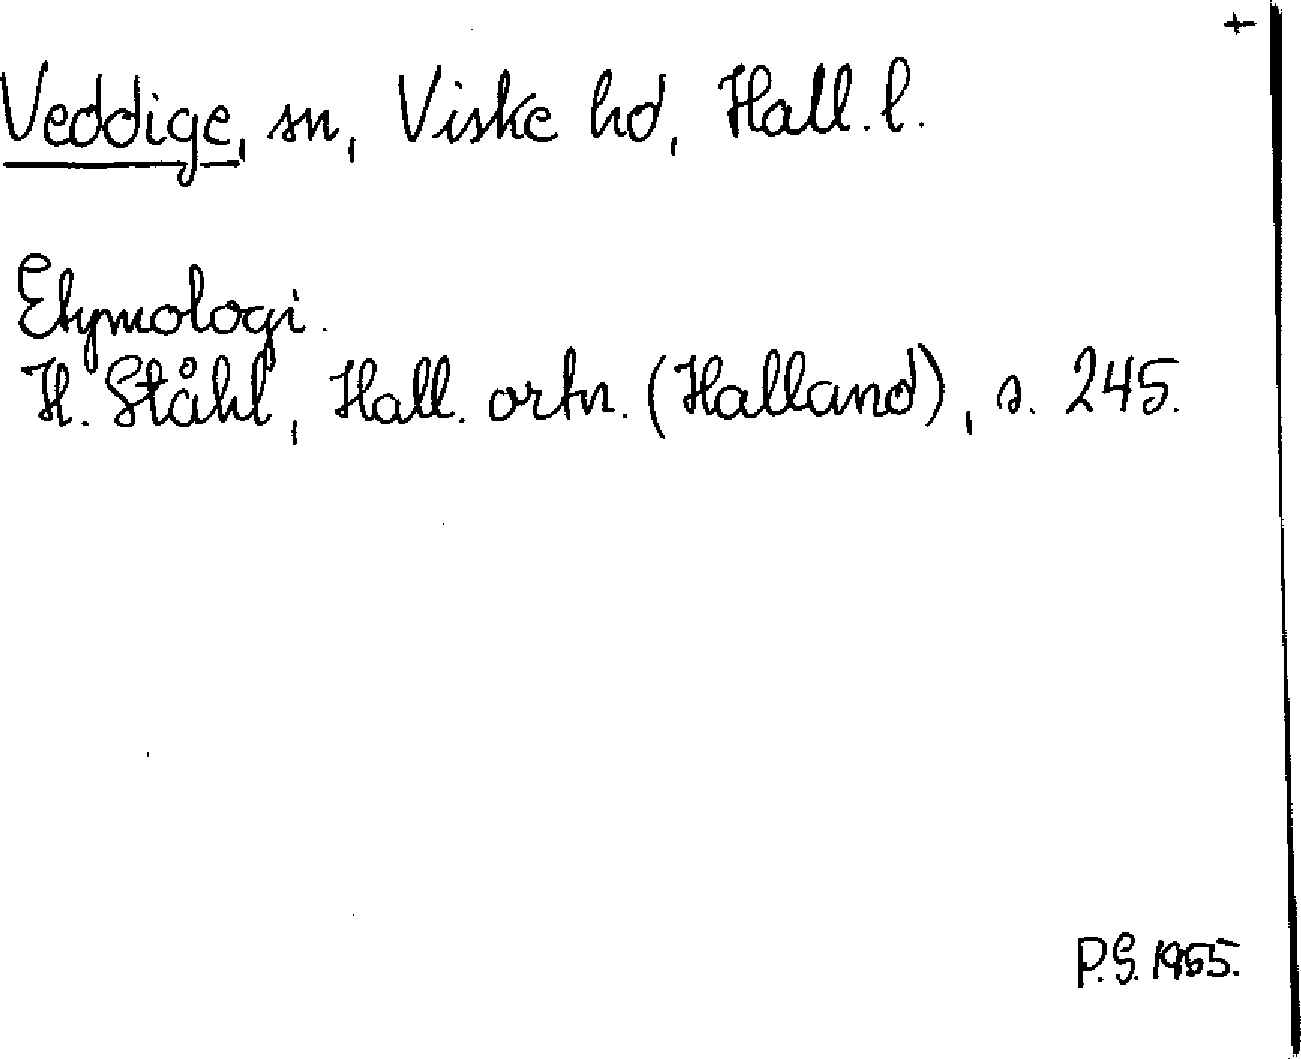 +
Veddige, sn, Viske hd, Hall. l.
Etymologi.
H. Ståhl, Hall. ortn. (Halland), s. 245.
P.G. 1955.